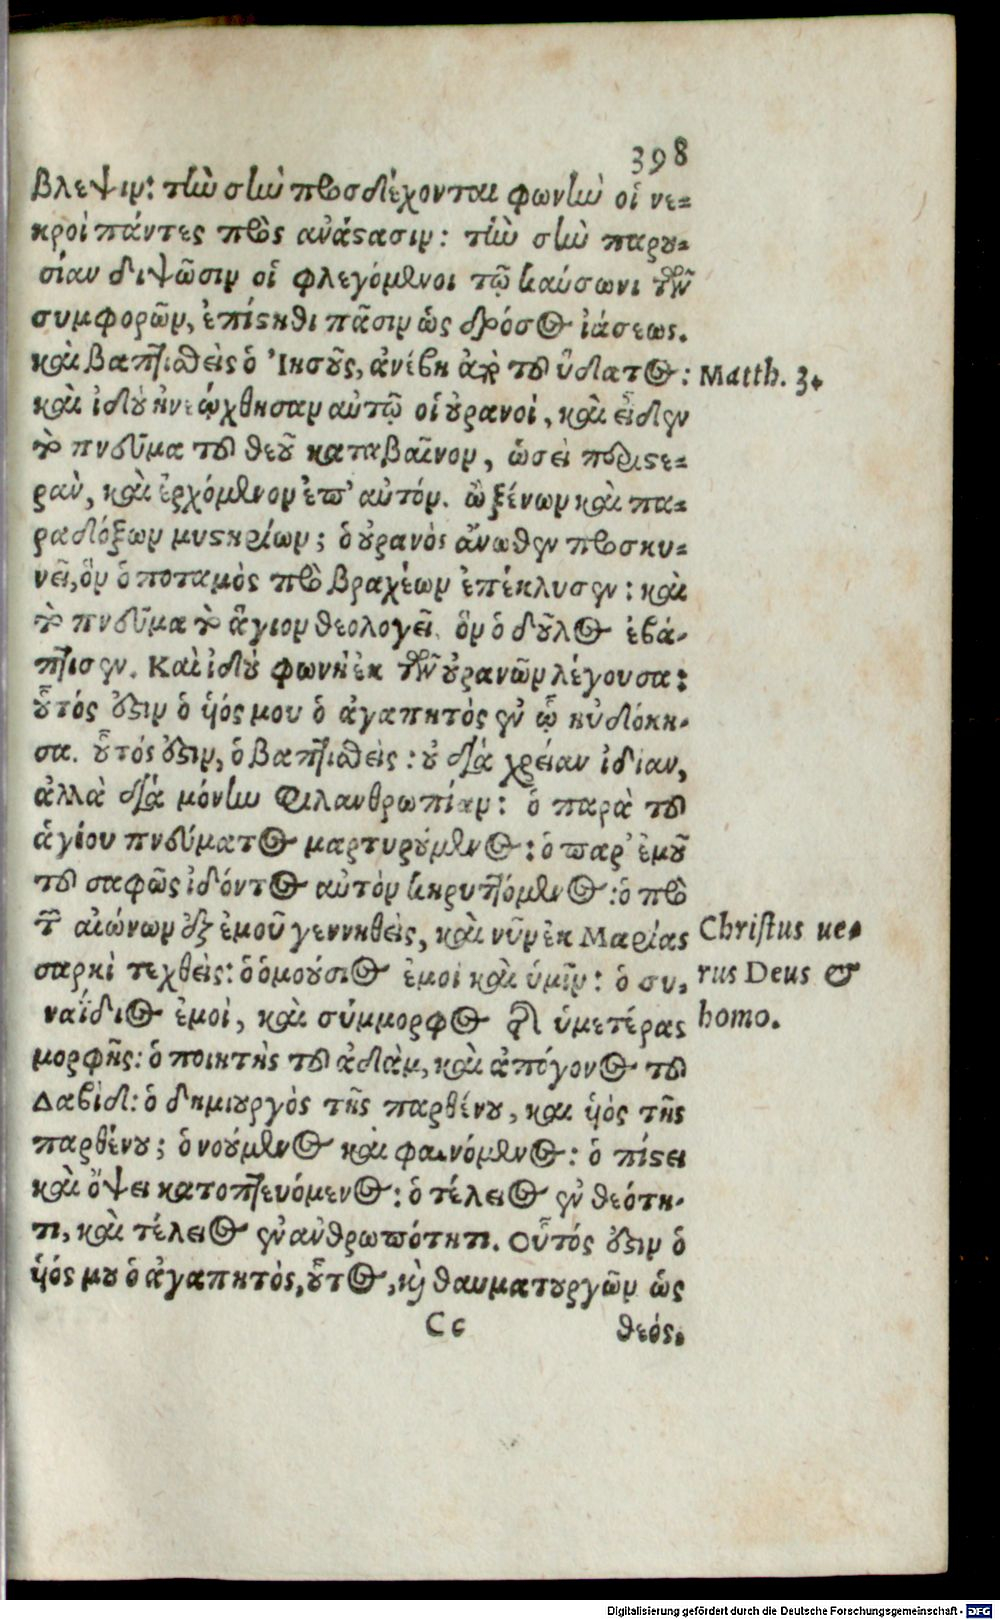 398
βλεψιν: τὴν σὴν προσδέχονται φωνὴν οἱ νε-
κροὶ πάντες πρὸς ανάστασιν: τὴν σὴν παρου-
σίαν διψῶσιν οἱ φλεγόμενοι τῷ καύσωνι τῶν
συμφορῶν, ἐπίστηθι πᾶσιν ὡς δρόσος ἰάσεως.
καὶ βαπτισθεὶς ὁ Ἰησοῦς, ἀνέβη ἀπὸ τοῦ ὕδατος:
Matth. 3.
καὶ ἰδοὺ ἠνεῴχθησαν αὐτῷ οἱ οὐρανοὶ, καὶ εἶδεν
τὸ πνεῦμα τοῦ θεοῦ καταβαῖνον, ὡσεὶ περιστε-
ρὰν, καὶ ἐρχόμενον ἐπ' αὐτόν. ὢ ξένων καὶ πα-
ραδόξων μυστηρίων; ὁ οὐρανὸς ἄνωθεν προσκυ-
νεῖ, ὃν ὁ ποταμὸς πρὸ βραχέων ἐπέκλυσεν: καὶ
τὸ πνεῦμα τὸ ἅγιον θεολογεῖ ὃν ὁ δοῦλος ἐβά-
πτισεν. Καὶ ἰδοὺ φωνὴ ἐκ τῶν οὐρανῶν λέγουσα:
οὗτός ἐστιν ὁ υἱός μου ὁ ἀγαπητὸς ἐν ᾧ ηὐδόκη-
σα. οὗτός ἐστιν, ὁ βαπτισθεὶς: οὐ διὰ χρείαν ἰδίαν,
ἀλλὰ διὰ μόνην φιλανθρωπίαν: ὁ παρὰ τοῦ
ἁγίου πνεύματος μαρτυρούμενος: ὁ παρ' ἐμοῦ
τοῦ σαφῶς ἰδόντος αὐτὸν κηρυττόμενος: ὁ πρὸ
τῶν αἰώνων ἐξ ἐμοῦ γεννηθεὶς, καὶ νῦν ἐκ Μαρίας
Christus ue-
σαρκὶ τεχθεὶς: ὁ ὁμοούσιος ἐμοὶ καὶ ὑμῖν: ὁ συ-
rus Deus &
ναΐδιος ἐμοὶ, καὶ σύμμορφος τῆς ὑμετέρας
homo.
μορφῆς: ὁ ποιητὴς τοῦ ἀδὰμ, καὶ ἀπόγονος τοῦ
Δαβίδ: ὁ δημιουργὸς τῆς παρθένου, και υἱός τῆς
παρθένου; ὁ νοούμενος καὶ φαινόμενος: ὁ πίστει
καὶ ὄψει κατοπτευόμενος: ὁ τέλειος ἐν θεότη-
τι, καὶ τέλειος ἐν ανθρωπότητι. Οὗτός ἐστιν ὁ
υἱός μου ὁ ἀγαπητὸς, οὗτος, καὶ θαυματουργῶν ὡς
Cc
θεός.
Digitalisierung gefördert durch die Deutsche Forschungsgemeinschaft - DFG